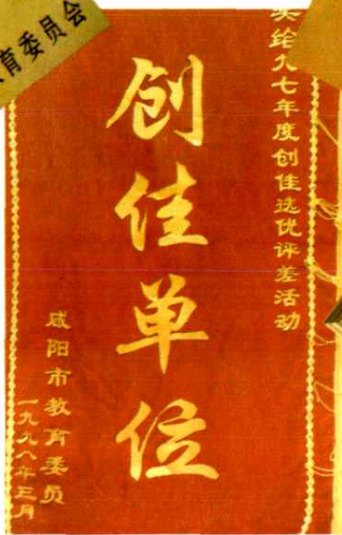 育委员会
奖给九七年度创佳选优评差活动
创佳单位
咸阳市教育委员
一九九八年三月